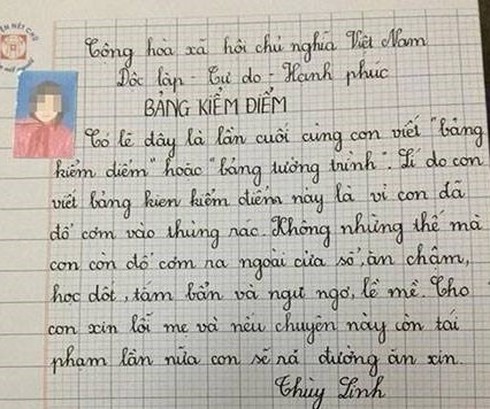 Cộng hoà xã hội chủ nghĩa Việt Nam
Độc lập - Tự do - Hạnh phúc
BẢNG KIỂM ĐIỂM
Có lẽ đây là lần cuối cùng con viết "bảng
kiểm điểm" hoặc "bảng tường trình". Lí do con
viết bảng kien kiểm điểm này là vì con đã
đổ cơm vào thùng rác. Không những thế mà
con còn đổ cơm ra ngoài cửa sổ, ăn chậm,
học dốt, tắm bẩn và ngu ngơ, lề mề. Cho
con xin lỗi mẹ và nếu chuyện này còn tái
phạm lần nữa con sẽ rả đường ăn xin.
Thùy Linh